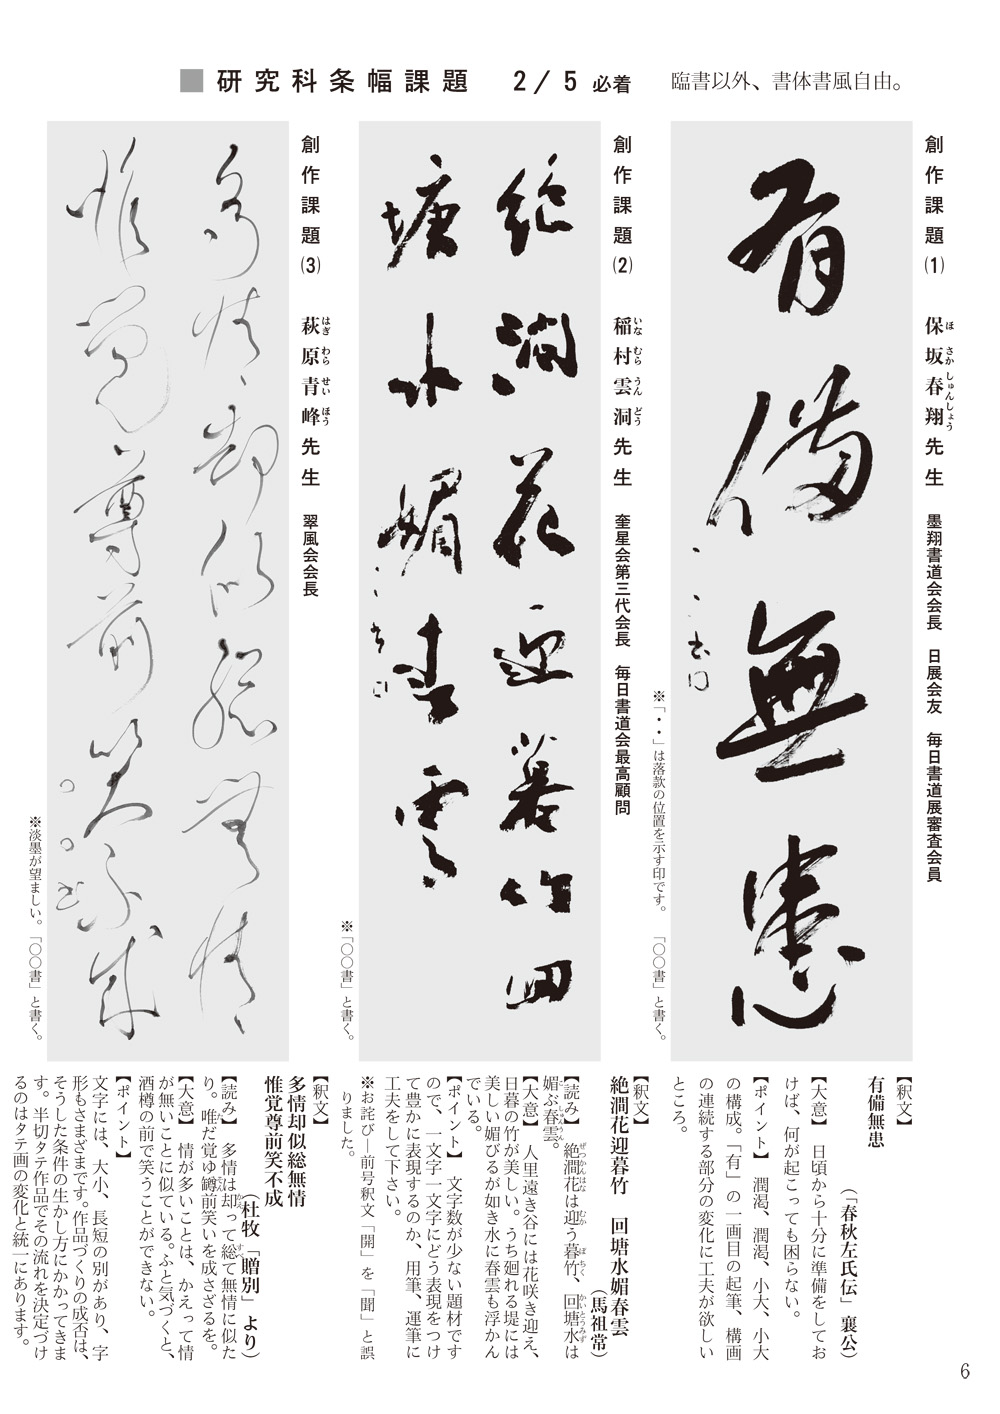 ■研究科条幅課題 2/5必着 臨書以外、書体書風自由。
創作課題(1) 保坂春翔先生 墨翔書道会会長 日展会友 毎日書道展審査会員
ほ さか しゅんしょう
有備無患
書
※「・・」は落款の位置を示す印です。 「○○書」と書く。
創作課題(2) 稲村雲洞先生 奎星会第三代会長 毎日書道会最高顧問
いな むら うん どう
絶澗花迎暮竹回
塘水媚春雲
※「○○書」と書く。
創作課題(3) 萩原青峰先生 翠風会会長
はぎ わら せい ほう
多情却似総無情
惟覚尊前笑不成
○○書
※淡墨が望ましい。「○○書」と書く。
【釈文】
有備無患
(「春秋左氏伝」襄公)
【大意】 日頃から十分に準備をしてお
けば、何が起こっても困らない。
【ポイント】 潤渇、潤渇、小大、小大
の構成。「有」の一画目の起筆、構画
の連続する部分の変化に工夫が欲しい
ところ。
【釈文】
絶澗花迎暮竹 回塘水媚春雲
(馬祖常)
【読み】 絶澗花は迎う暮竹、回塘水は
ぜつかんはな むか ぼちく かいとうみず
媚ぶ春雲。
こ しゅんうん
【大意】 人里遠き谷には花咲き迎え、
日暮の竹が美しい。うち廻れる堤には
美しい媚びるが如き水に春雲も浮かん
でいる。
【ポイント】 文字数が少ない題材です
ので、一文字一文字にどう表現をつけ
て豊かに表現するのか、用筆、運筆に
工夫をして下さい。
※お詫び―前号釈文「開」を「聞」と誤
りました。
【釈文】
多情却似総無情
惟覚尊前笑不成
(杜牧「贈別」より)
【読み】 多情は却って総て無情に似た
かえ すべ
り。唯だ覚ゆ罇前笑いを成さざるを。
そん
【大意】 情が多いことは、かえって情
が無いことに似ている。ふと気づくと、
酒樽の前で笑うことができない。
【ポイント】
文字には、大小、長短の別があり、字
形もさまざまです。作品づくりの成否は、
そうした条件の生かし方にかかってきま
す。半切タテ作品でその流れを決定づけ
るのはタテ画の変化と統一にあります。
6